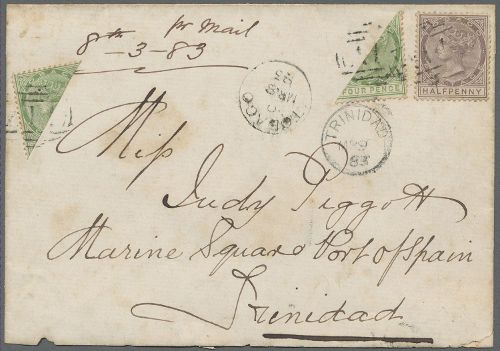 8th pr Mail
-3-83
FOUR PENCE
HALFPENNY
TOBAGO
MR 8
83
TRINIDAD
83
Miss
Judy Piggott
Marine Square Port of Spain
Trinidad